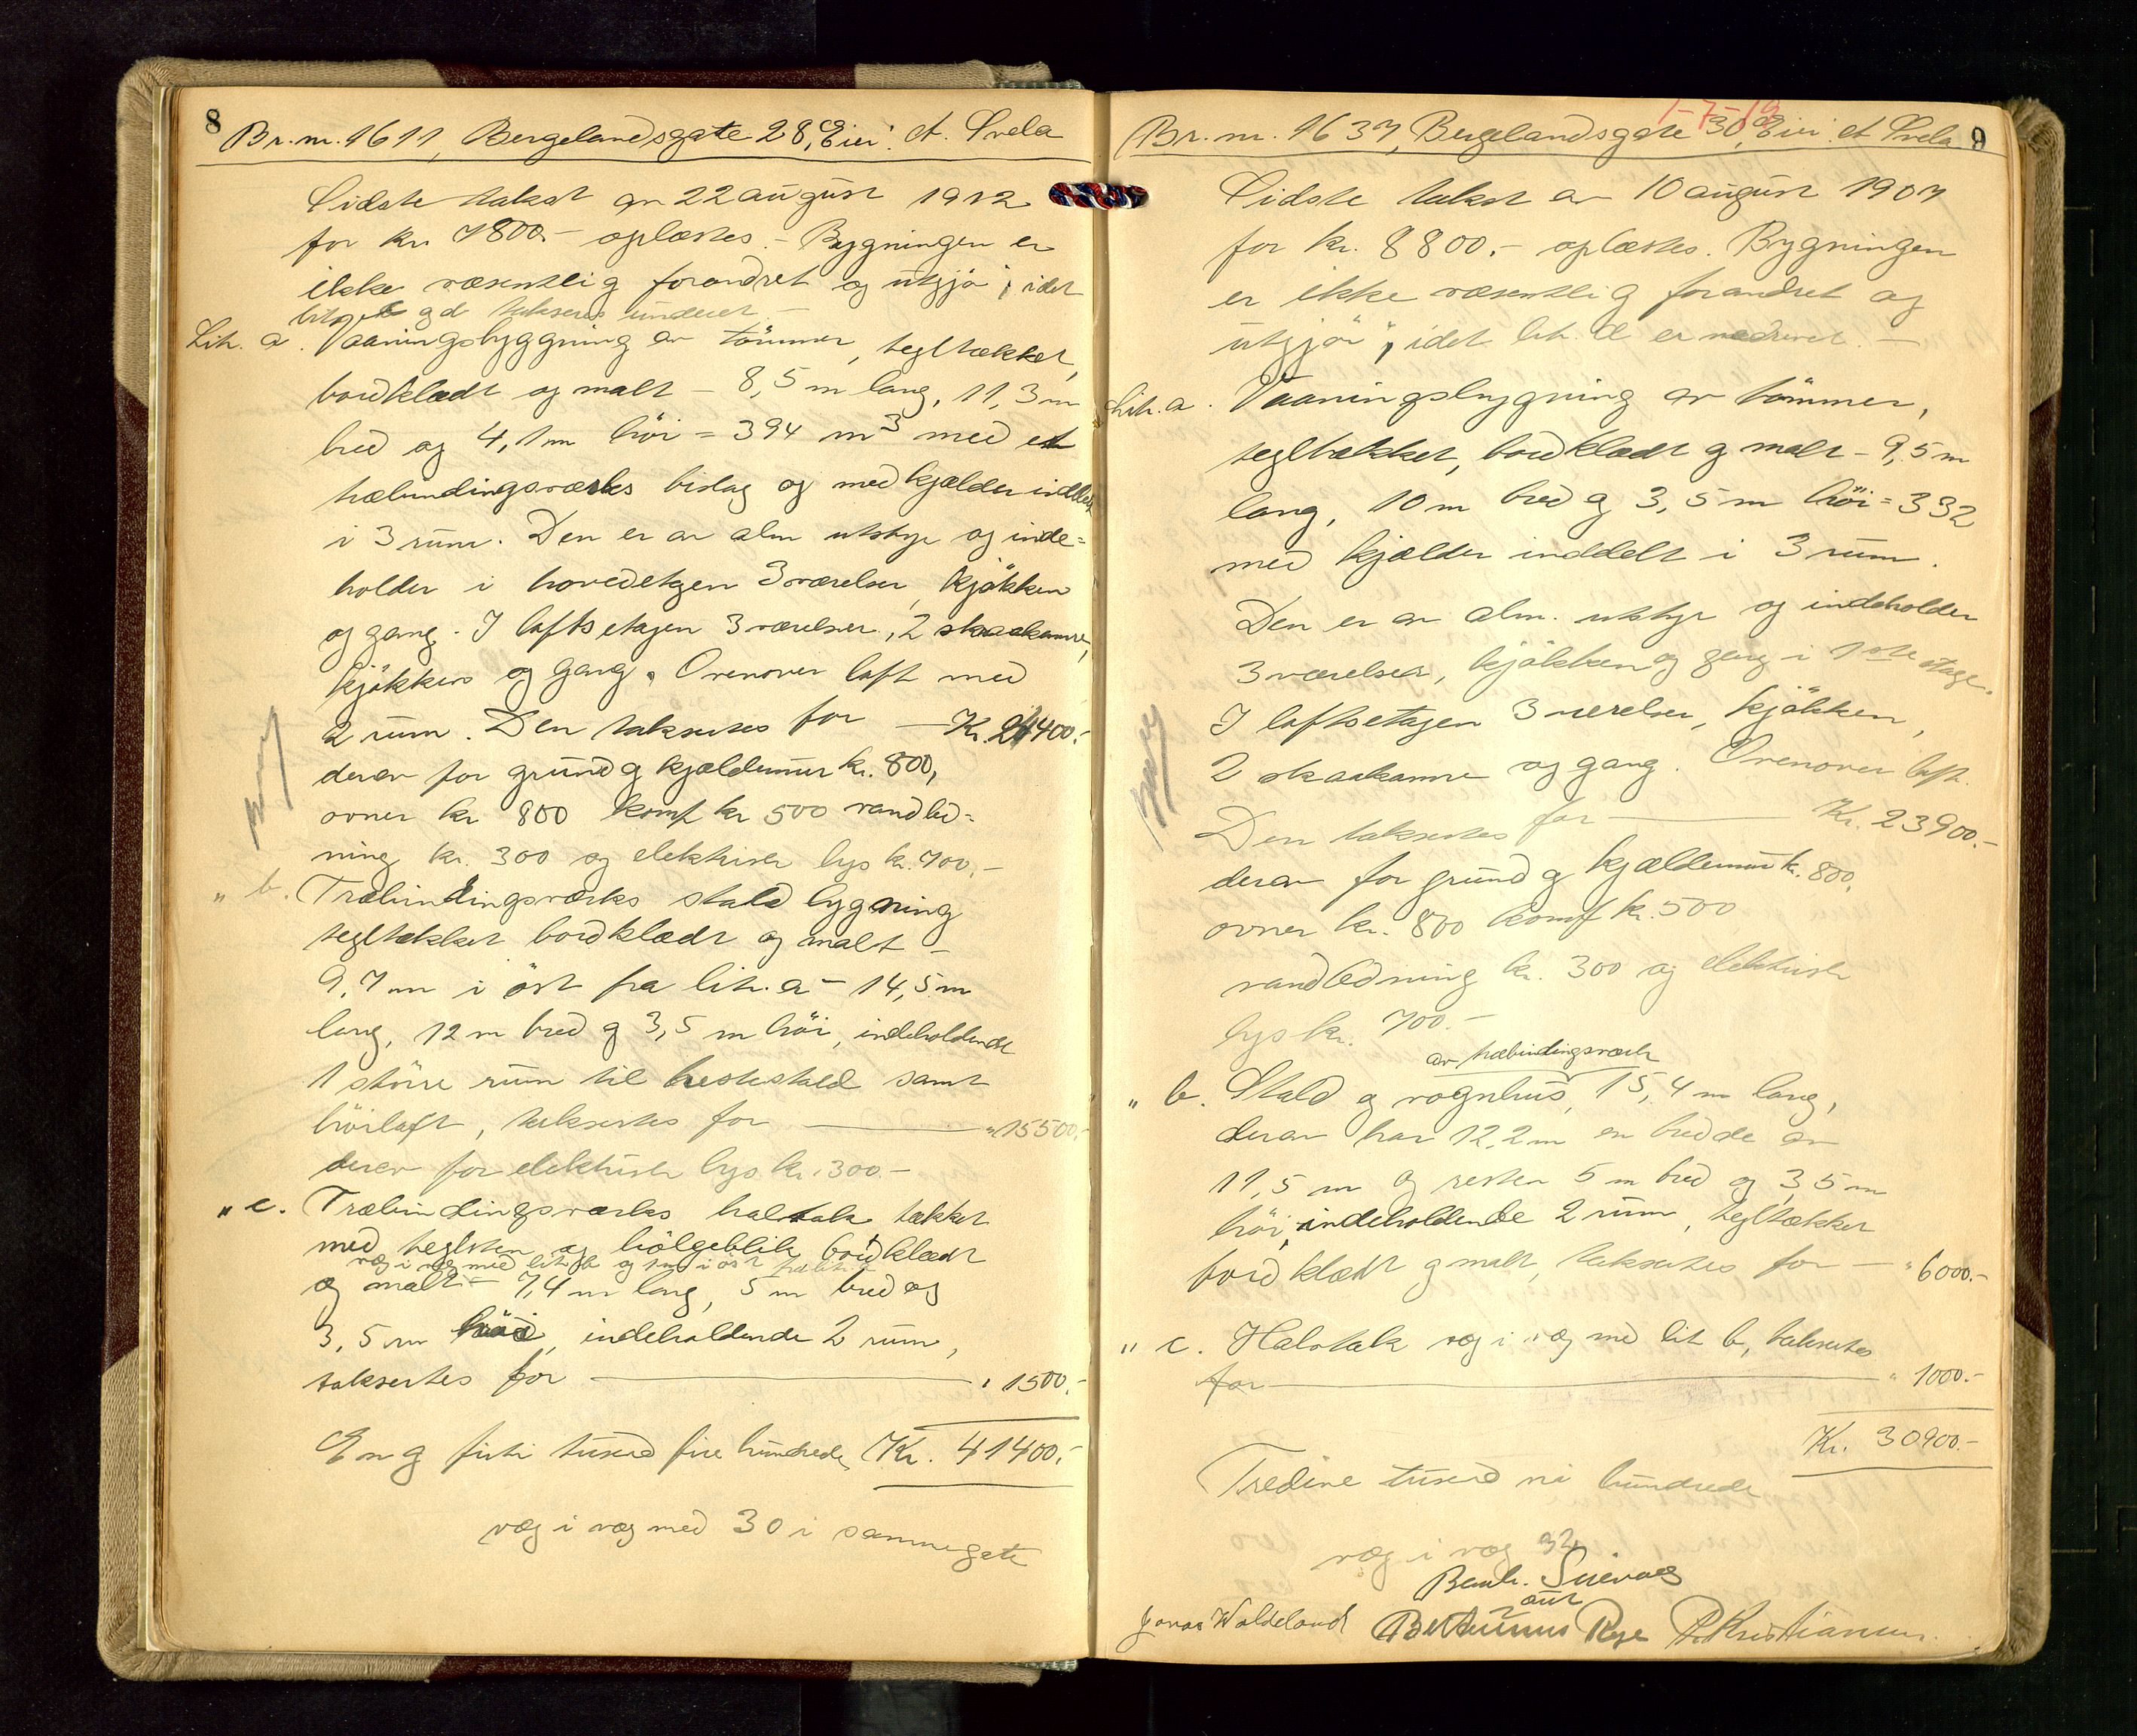 8
Br.nr. 1611, Bergelandsgate 28, Eier: A. Svela
Sidste takst av 22 august 1912
for kr. 7800.- oplæstes. - Bygningen er
ikke væsentlig forandret og utgjør, idet
og d takseres under et -
Lit. a. Vaaningsbyggning av tömmer, tegltækket,
bordklædt og malt - 8,5 m lang, 11,3 m
bred og 4,1 m höi = 394 m³ med et
træbindingsværks bislag og med kjælder inddelt
i 3 rum. Den er av alm utstyr og inde=
holder i hovedetagen 3 værelser, kjökken
og gang. I loftsetagen 3 værelser, 2 skraakamre,
kjökken og gang. Ovenover loft med
2 rum. Den taksertes for - Kr. 24400.-
derav for grund og kjældermur kr. 800,
ovner kr 800 komf kr 500 vandled=
ning kr. 300 og elektrisk lys kr. 700.-
" b. Træbindingsværks stald bygning
tegltækket bordklædt og malt -
9,7 m i öst fra lit. a - 14,5 m
lang, 12 m bred og 3,5 m höi, indeholdende
1 större rum til hestestald samt
höiloft, taksertes for - " 15500.-
derav for elektrisk lys kr. 300.-
" c. Træbindingsværks halvtak tækket
med teglsten og bölgeblik bordklædt
væg i væg med lit b og i öst
og malt - 7,4 m lang, 5 m bred og
3,5 m höi, indeholdende 2 rum,
taksertes for - " 1500.-
En og firti tusend fire hundrede Kr. 41400.-
væg i væg med 30 i samme gate
1-7-19
Br.nr. 1637, Bergelandsgate 30, Eier: A Svela 9
Sidste takst av 10 august 1907
for kr. 8800.- oplæstes. Bygningen
er ikke væsentlig forandret og
utgjör, idet lit. d er nedrevet. -
Lit. a. Vaaningsbygning av tömmer,
tegltækket, bordklædt og malt - 9,5 m
lang, 10 m bred og 3,5 m höi = 332
med kjælder inddelt i 3 rum.
Den er av alm. utstyr og indeholder
3 værelser, kjökken og gang i 1ste etage.
I loftsetagen 3 værelser, kjökken,
2 skraakamre og gang. Ovenover loft.
Den taksertes for - Kr. 23900.-
derav for grund og kjældermur kr. 800,
ovner kr. 800 komf kr. 500
vandledning kr. 300 og elektrisk
lys kr. 700.-
av træbindingsværk
" b. Stald og vognhus, 15,4 m lang,
derav har 12,2 m en bredde av
11,5 m og resten 5 m bred og 3,5 m
höi, indeholdende 2 rum, tegltækket
bordklædt og malt, taksertes for - " 6000.-
" c. Halvtak væg i væg med lit b, taksertes
for - " 1000.-
Kr. 30900.-
Tredive tusend ni hundrede
væg i væg 32
Jonas Waldeland